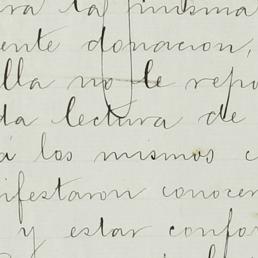 ra la misma
ente donacion,
lla no le repo
da lectura de
á los mismos c
ifestaron conocer
y estar confor